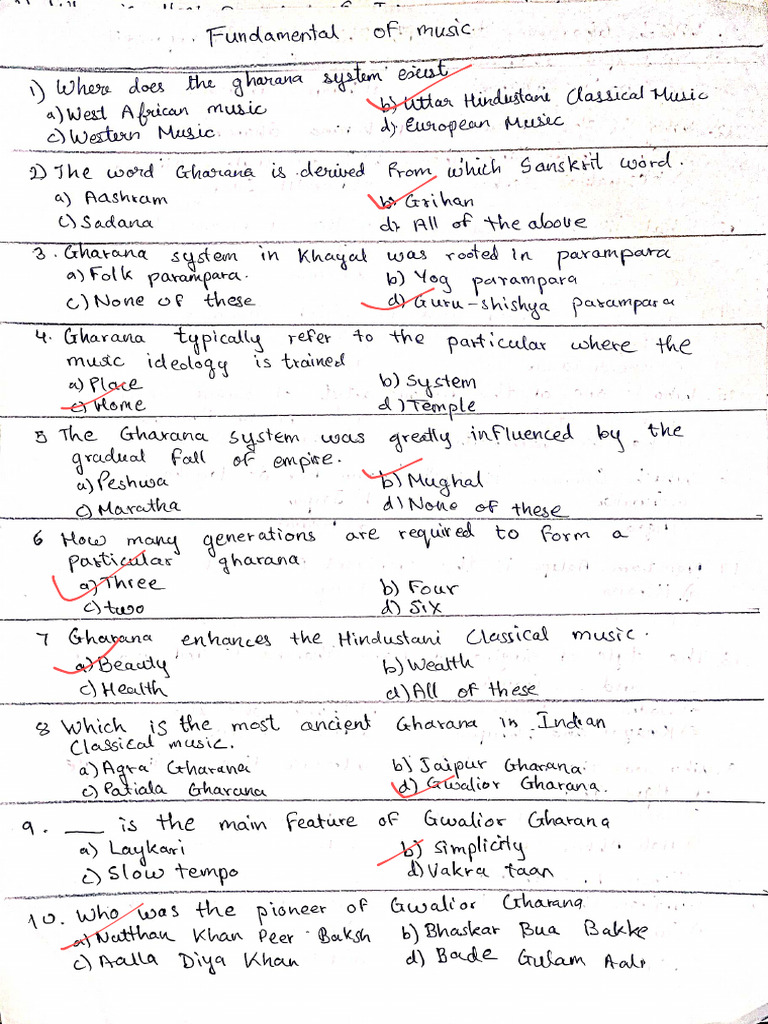 Fundamental of music
1) Where does the gharana system exist
a) West African music b) Uttar Hindustani Classical Music
c) Western Music d) European Music
2) The word Gharana is derived from which Sanskrit word.
a) Aashram b) Grihan
c) Sadana d) All of the above
3. Gharana system in Khayal was rooted in parampara
a) Folk parampara. b) Yog parampara
c) None of these d) Guru-shishya parampara
4. Gharana typically refer to the particular where the
music ideology is trained
a) Place b) System
c) Home d) Temple
5 The Gharana system was greatly influenced by the
gradual fall of empire.
a) Peshwa b) Mughal
c) Maratha d) None of these
6 How many generations are required to form a
particular gharana.
a) Three b) Four
c) two d) Six
7 Gharana enhances the Hindustani Classical music.
a) Beauty b) Wealth
c) Health d) All of these
8 Which is the most ancient Gharana in Indian
Classical music.
a) Agra Gharana b) Jaipur Gharana.
c) Patiala Gharana d) Gwalior Gharana.
9. __ is the main feature of Gwalior Gharana
a) Laykari b) Simplicity
c) Slow tempo d) Vakra taan
10. Who was the pioneer of Gwalior Gharana
a) Natthan Khan Peer Baksh b) Bhaskar Bua Bakke
c) Aalla Diya Khan d) Bade Gulam Aali